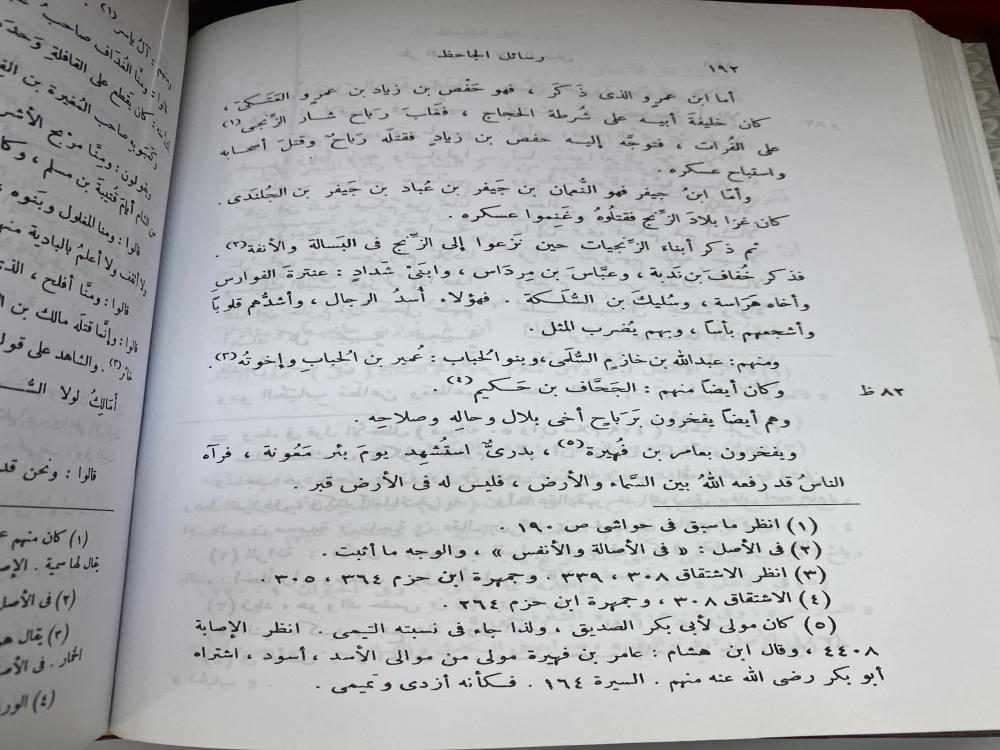 ١٩٢
رسائل الجاحظ
أما ابن عمرو الذى ذَكَر ، فهو حَفْص بن زياد بن عمرو العَتَكىّ ،
كان خليفةَ أبيه على شُرطة الحجاج ، فغَلَب رَباح شار الزَّنجى(١)
على الفُرات ، فتوجَّه إليه حفص بن زيادٍ فقتلَه رَباحٌ وقتلَ أصحابه
واستباح عسكره .
وأمَّا ابنُ جيفر فهو النُّعمان بن جَيفر بن عُباد بن جَيفر بن الجُلَندَى .
كان غزا بلادَ الزِّنج فقتلُوهُ وغَنِموا عسكره .
ثم ذكر أبناءَ الزِّنجيات حين نَزَعوا إلى الزِّنج فى البَسالة والأنفة(٢) .
فذكر خُفافَ بن نَدبة ، وعبَّاسَ بن مِرداس ، وابنَىْ شَدادٍ : عنترةَ الفوارس
وأخاه هَرَاسة ، وسُليكَ بن السُّلَكة . فهؤلاء أسدُ الرجال ، وأشدُّهم قلوباً
وأشجعهم بأساً ، وبهم يُضرب المثل .
ومنهم : عبدالله بن خازمٍ السُّلَمى ، وبنو الحُباب : عُمير بن الحُبابِ وإخوتُه(٣) .
وكان أيضاً منهم : الجَحَّاف بن حَكيم(٤) .
٨٢ ظ
وهم أيضاً يفخرون بَربَاحٍ أخى بلال وحالِهِ وصلاحِهِ .
ويفخرون بعامر بن فُهيرة(٥) ، بدرىٌّ استُشهِد يومَ بئر مَعُونة ، فرآه
الناسُ قد رفعه اللهُ بين السَّماء والأرض ، فليس له فى الأرض قبر .
(١) انظر ما سبق فى حواشى ص ١٩٠ .
(٢) فى الأصل : « فى الأصالة والأنفس » ، والوجه ما أثبت .
(٣) انظر الاشتقاق ٣٠٨ ، ٣٣٩ . وجمهرة ابن حزم ٣٦٤ ، ٣٠٥ .
(٤) الاشتقاق ٣٠٨ ، وجمهرة ابن حزم ٢٦٤ .
(٥) كان مولى لأبى بكر الصديق ، ولذا جاء فى نسبته التيمى . انظر الإصابة
٤٤٠٨ ، وقال ابن هشام : عامر بن فهيرة مولى من موالى الأسد ، أسود ، اشتراه
أبو بكر رضى الله عنه منهم . السيرة ١٦٤ . فكأنه أزدى وتميمى .
ومنهم : آل ياسر(١) .
قالوا : ومنَّا الغُدَاف صاحب
كان يقطع على القافلة وحدَه
وكَبَوَيه صاحب المُغيرة بن
ويقولون : ومِنَّا مربح الأشر
الشام أيامَ قُتيبة بن مسلم ، وكا
قالوا : ومنا المغلول وبَنوه ،
ولا أثقفَ ولا أعلمُ بالبادية منهم
قالوا : ومنَّا أفلح ، الذى
قالوا : وإنَّما قتلَه مالك بن
والشاهد على قول
أَمَالِكُ لولا
قالوا : ونحن قد
(١) كان منهم
يقال لها سمية .
(٢) فى الأصل
(٣) يقال هو
الخمار . فى الأص
(٤) الور